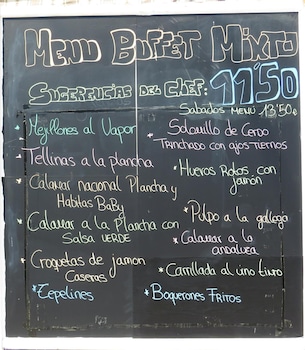 MENU BUFFET MIXTO
SUGERENCIAS DEL CHEF: 11'50
SABADOS MENÚ 13'50€
* Mejillones al Vapor
* Tellinas a la plancha
* Calamar nacional Plancha y
Habitas BaBy
* Calamar a la Plancha con
SALSA VERDE
* Croquetas de jamon
Caseras
* Zepelines
* Solomillo de Cerdo
TRINCHADO CON AJOS TIERNOS
* Huevos Rotos con
jamón
* Pulpo a la gallega
* Calamar a la
andaluza
* Carrillada al vino tinto
* Boquerones FRITOS